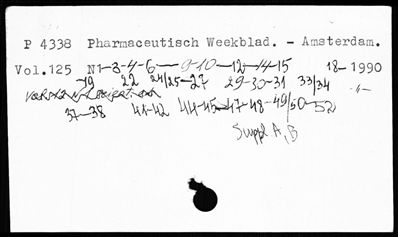 P 4338 Pharmaceutisch Weekblad. - Amsterdam.
Vol.125 N1-3-4-6- 9-10-12-14-15 18-1990
19 22 24/25-27 29-30-31 33/34 -"-
37-38 41-42 44-45-47-48-49/50-52
Suppl A, B